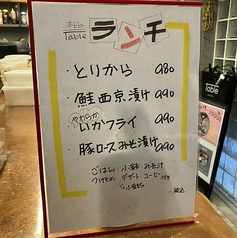 本日の
Table
ランチ
・とりから 980
・鮭西京漬け 990
やわらか
・いかフライ 990
・豚ロースみそ漬け 990
ごはん 小鉢 みそ汁
つけもの デザート コーヒー付き
Table